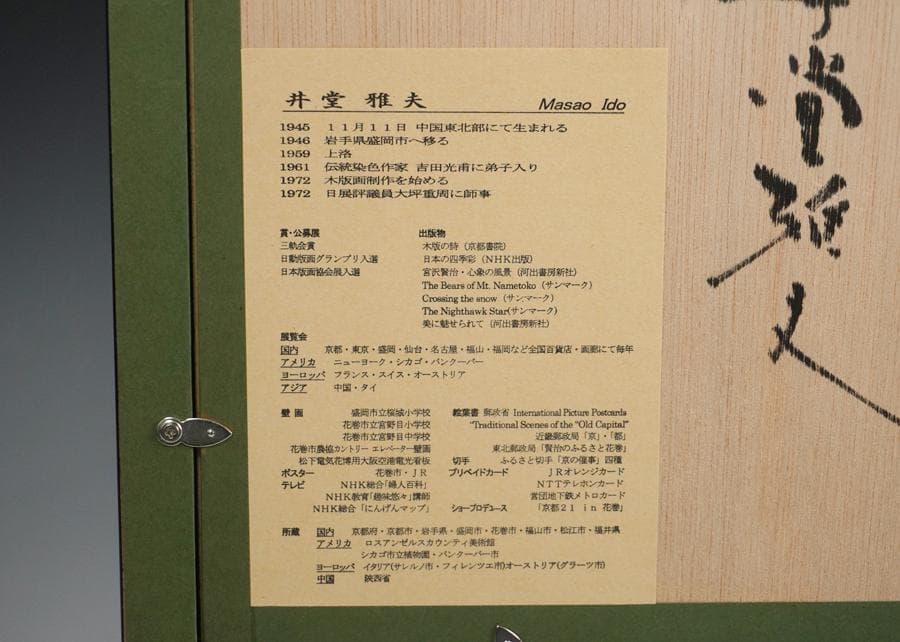 井堂 雅夫 Masao Ido
1945 11月11日 中国東北部にて生まれる
1946 岩手県盛岡市へ移る
1959 上洛
1961 伝統染色作家 吉田光甫に弟子入り
1972 木版画制作を始める
1972 日展評議員大坪重周に師事
賞・公募展
三軌会賞
日動版画グランプリ入選
日本版画協会展入選
出版物
木版の詩(京都書院)
日本の四季彩(NHK出版)
宮沢賢治・心象の風景(河出書房新社)
The Bears of Mt. Nametoko(サンマーク)
Crossing the snow(サンマーク)
The Nighthawk Star(サンマーク)
美に魅せられて(河出書房新社)
展覧会
国内 京都・東京・盛岡・仙台・名古屋・福山・福岡など全国百貨店・画廊にて毎年
アメリカ ニューヨーク・シカゴ・バンクーバー
ヨーロッパ フランス・スイス・オーストリア
アジア 中国・タイ
壁画 盛岡市立桜城小学校
花巻市立宮野目小学校
花巻市立宮野目中学校
花巻市農協カントリー エレベーター壁画
松下電気花博用大阪空港電光看板
ポスター 花巻市・JR
テレビ NHK総合「婦人百科」
NHK教育「趣味悠々」講師
NHK総合「にんげんマップ」
絵葉書 郵政省 International Picture Postcards
"Traditional Scenes of the "Old Capital"
近畿郵政局「京」・「都」
東北郵政局「賢治のふるさと花巻」
切手 ふるさと切手「京の催事」四種
プリペイドカード JRオレンジカード
NTTテレホンカード
営団地下鉄メトロカード
ショープロデュース 「京都21 in 花巻」
所蔵 国内 京都府・京都市・岩手県・盛岡市・花巻市・福山市・松江市・福井県
アメリカ ロスアンゼルスカウンティ美術館
シカゴ市立植物園・バンクーバー市
ヨーロッパ イタリア(サレルノ市・フィレンツエ市)オーストリア(グラーツ市)
中国 陝西省
井堂雅夫